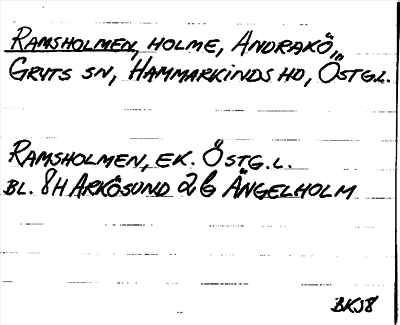 RAMSHOLMEN, HOLME, ANDRAKÖ,
GRYTS SN, HAMMARKINDS HD, ÖSTGL.
RAMSHOLMEN, EK. ÖSTG.L.
BL. 8H ARKÖSUND 2G ÄNGELHOLM
BKJ8